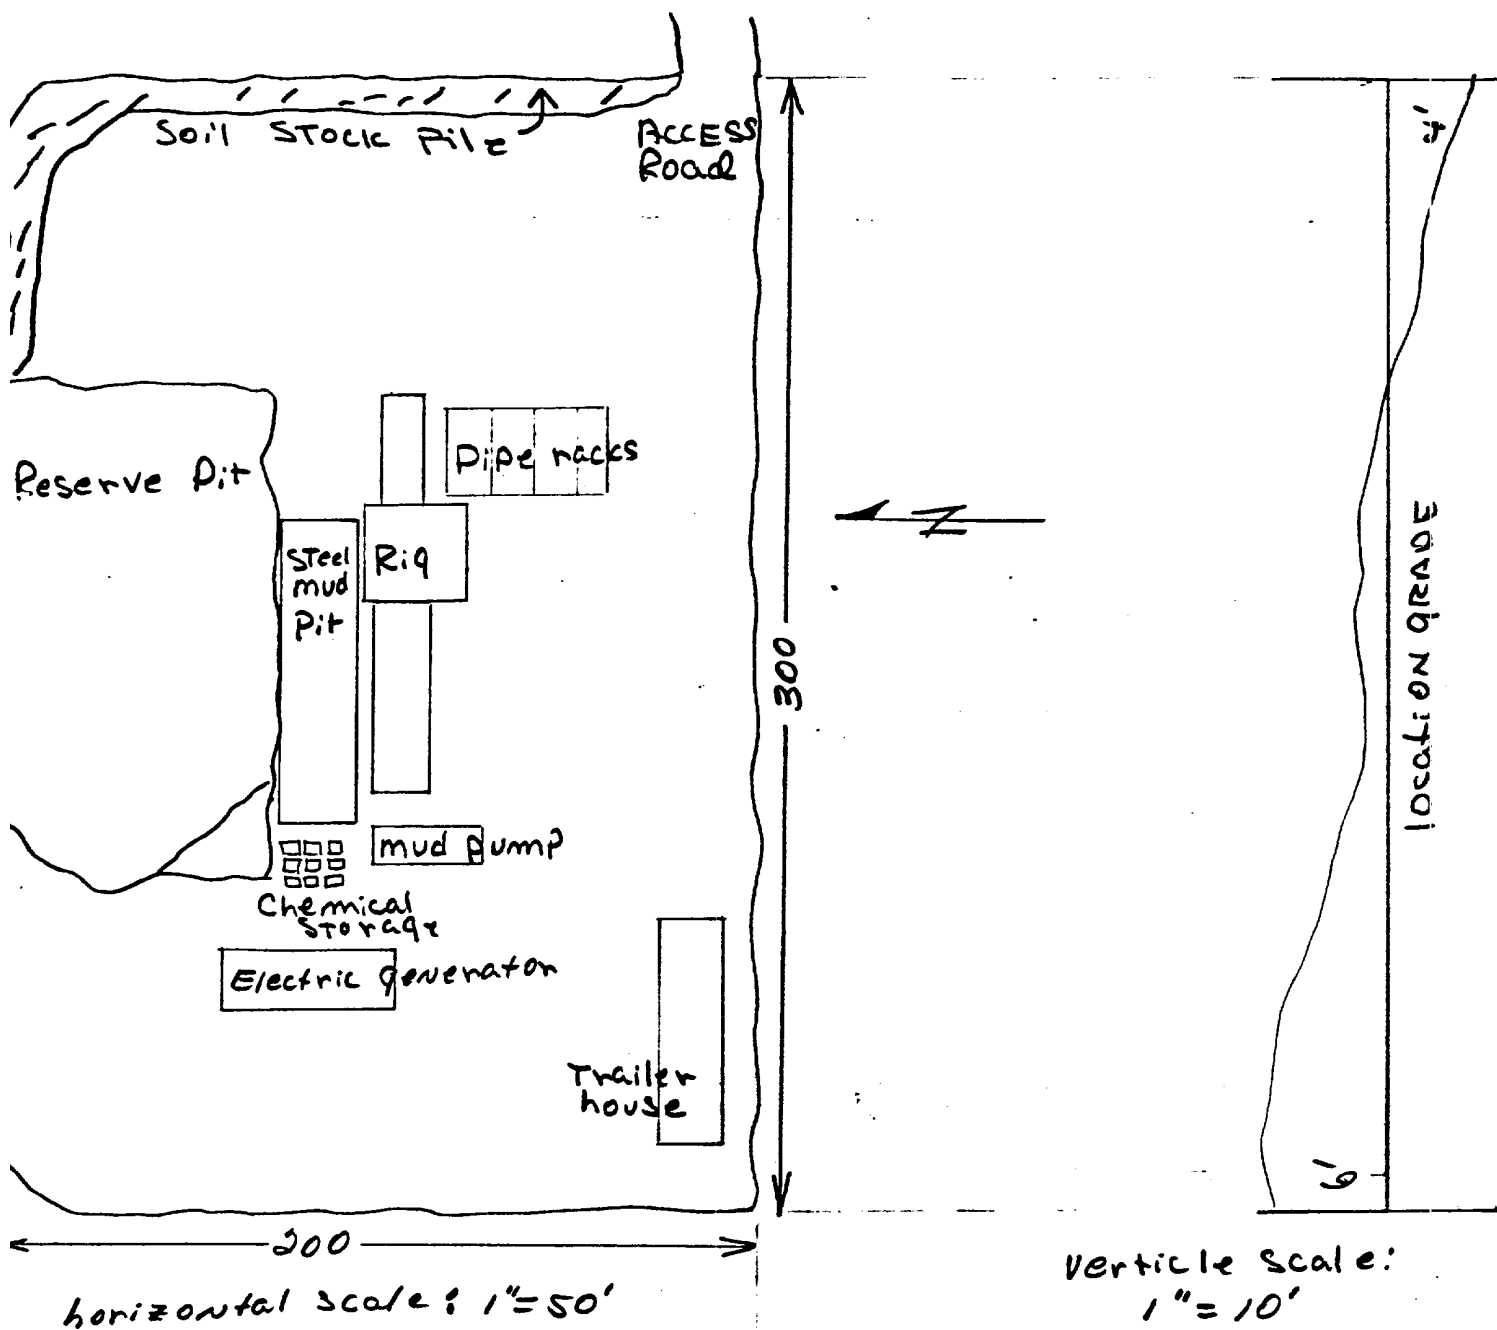 Soil Stock Pile
ACCESS
Road
4'
Reserve Pit
Pipe racks
Steel
mud
Pit
Rig
N
location GRADE
300
mud pump
Chemical
Storage
Electric generator
Trailer
house
6'
200
horizontal scale: 1"=50'
verticle scale:
1"=10'